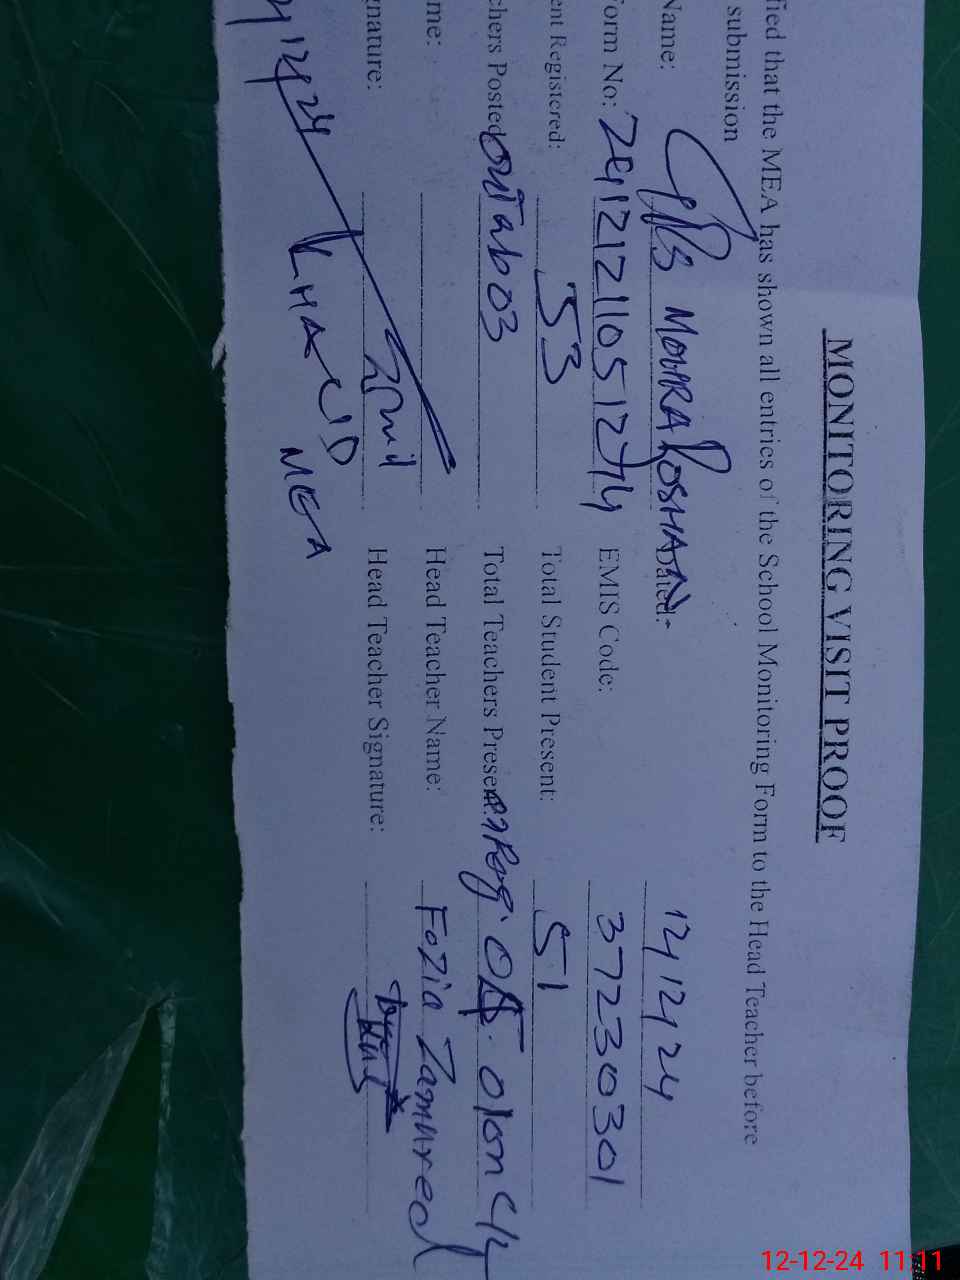 MONITORING VISIT PROOF
fied that the MEA has shown all entries of the School Monitoring Form to the Head Teacher before
submission
Name: MOHRA ROSHAN Dated:- 12/12/24
Form No: EMIS Code: 37230301
ent Registered: 53 Total Student Present: 51
chers Posted 03 Total Teachers Present
me: Head Teacher Name: Fozia Zamured
gnature: Head Teacher Signature:
12/24
KHALID MEA
12-12-24 11:11